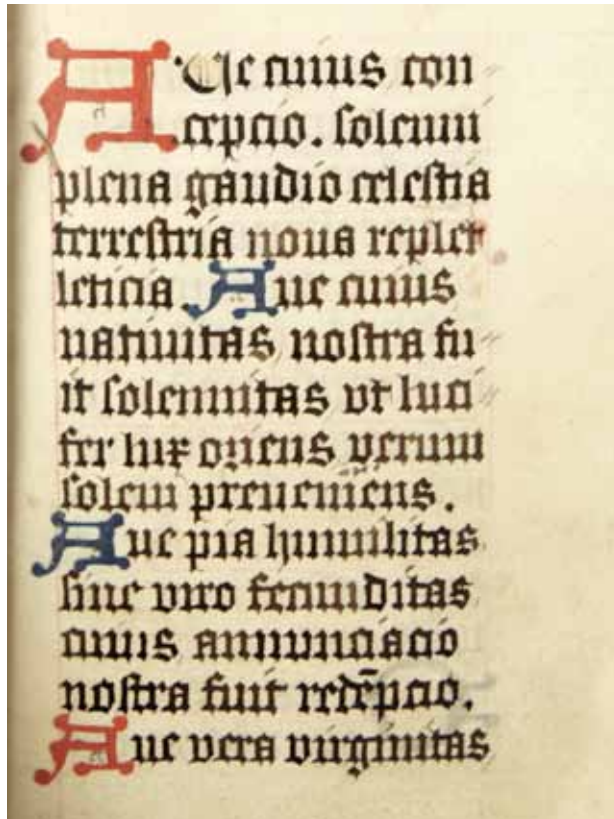 AUe cuius con
cepcio. solemni
plena gaudio celestia
terrestria noua replet
leticia. Aue cuius
natiuitas nostra fu
it solemnitas vt luci
fer lux oriens verum
solem preueniens.
Aue pia humilitas
sine viro fecunditas
cuius annunciacio
nostra fuit redēpcio.
Aue vera virginitas